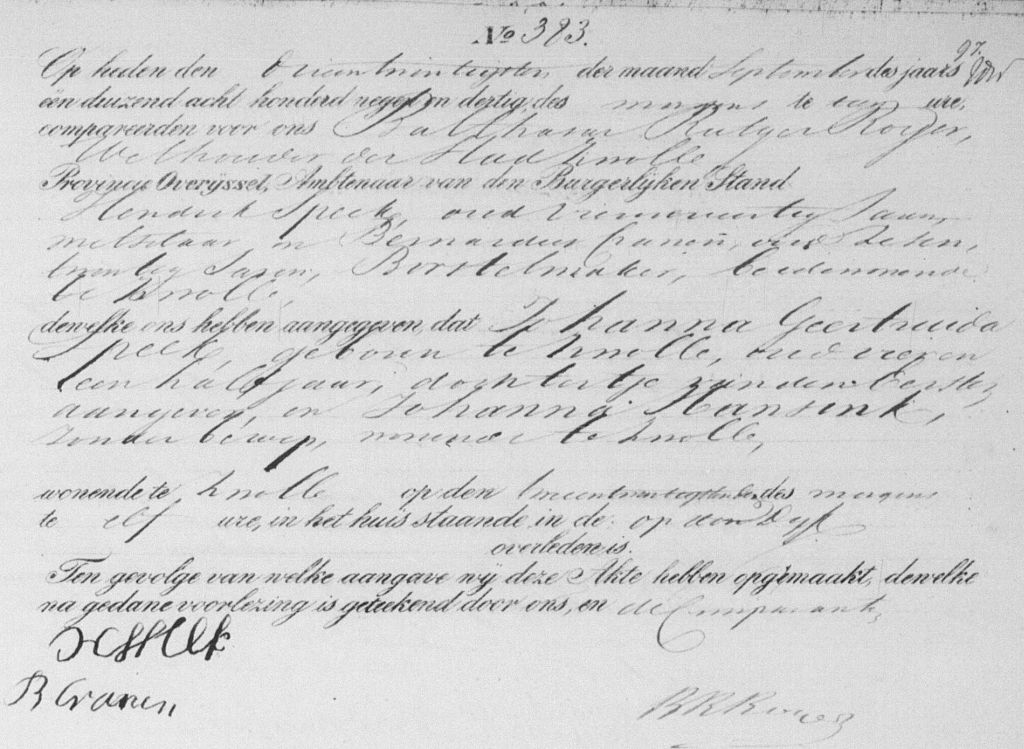 No 383.
97.
Op heden den Drieentwintigsten der maand September des jaars
een duizend acht honderd negen en dertig, des morgens te elf ure,
compareerden voor ons Balthasar Rutger Roijer,
Wethouder der Stad Zwolle
Provincie Overijssel, Ambtenaar van den Burgerlijken Stand
Hendrik Speek, oud Jaren,
metselaar, en Bernardus Cranen, oud Zesen,
twintig Jaren, Borstelmaker, beide wonende
te Zwolle,
dewelke ons hebben aangegeven, dat Johanna Geertruida
Speek, geboren te Zwolle, oud vier en
een half jaar, dochtertje van den Eersten
aangever, en Johanna Hansink,
zonder beroep, wonende te Zwolle,
wonende te Zwolle op den tweeentwintigsten dezer des morgens
te elf ure, in het huis staande in de: op den Dijk
overleden is.
Ten gevolge van welke aangave wij deze Akte hebben opgemaakt, dewelke
na gedane voorlezing is geteekend door ons, en de Comparanten
B Cranen